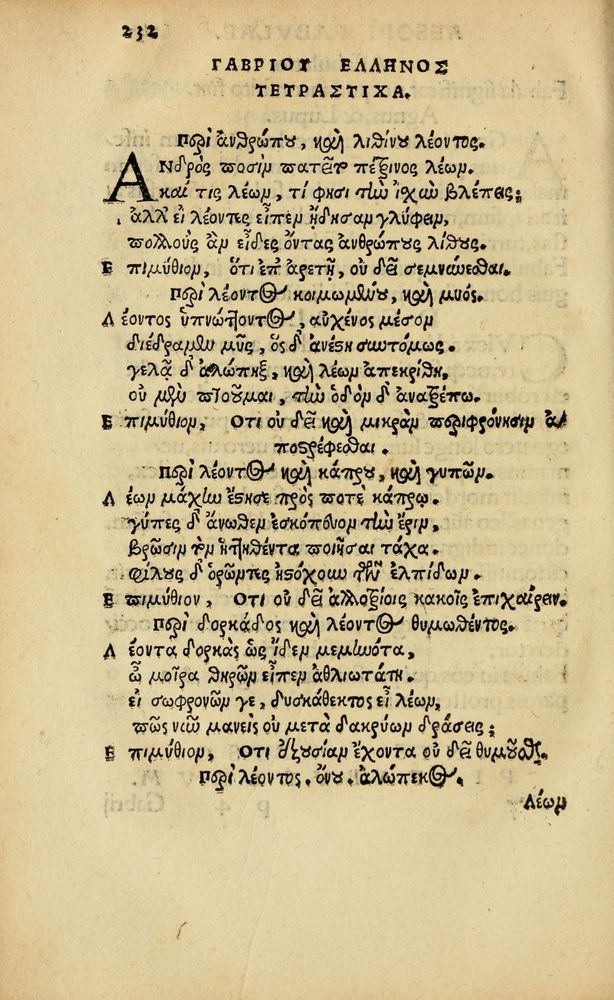 232
ΓΑΒΡΙΟΥ ΕΛΛΗΝΟΣ
ΤΕΤΡΑΣΤΙΧΑ.
Περὶ ἀνθρώπου, καὶ λιθίνου λέοντος.
ΑΝδρὸς ποσὶν πατεῖτο πέτρινος λέων.
καί τις λέων, τί φησι τὴν ἰσχὺν βλέπεις;
ἀλλ' εἰ λέοντες εἶπεν ᾔδησαν γλύφειν,
πολλοὺς ἂν εἶδες ὄντας ἀνθρώπους λίθους.
Επιμύθιον, ὅτι ἐπ' ἀρετῇ, οὐ δεῖ σεμνύνεσθαι.
Περὶ λέοντος κοιμωμένου, καὶ μυός.
Λέοντος ὑπνώττοντος, αὐχένος μέσον
διέδραμεν μῦς, ὃς δ' ἀνέστη συντόμως.
γελᾷ δ' ἀλώπηξ, καὶ λέων ἀπεκρίθη,
οὐ μῦν πτοοῦμαι, τὴν ὁδὸν δ' ἀνατρέπω.
Επιμύθιον, Οτι οὐ δεῖ καὶ μικρὰν περιφρόνησιν ἀ/
ποστρέφεσθαι.
Περὶ λέοντος καὶ κάπρου, καὶ γυπῶν.
Λέων μάχην ἔστησε πρός ποτε κάπρῳ.
γύπες δ' ἄνωθεν ἐσκόπευον τὴν ἔριν,
βρῶσιν τὸν ἡττηθέντα ποιῆσαι τάχα.
φίλους δ' ὁρῶντες ἠστόχουν τῶν ἐλπίδων.
Επιμύθιον, Οτι οὐ δεῖ ἀλλοτρίοις κακοῖς ἐπιχαίρειν.
Περὶ δορκάδος καὶ λέοντος θυμωθέντος.
Λέοντα δορκὰς ὡς ἴδεν μεμηνότα,
ὦ μοῖρα θηρῶν εἶπεν ἀθλιωτάτη.
εἰ σωφρονῶν γε, δυσκάθεκτος εἶ λέων,
πῶς νῦν μανεὶς οὐ μετὰ δακρύων δράσεις;
Επιμύθιον, Οτι ἐξουσίαν ἔχοντα οὐ δεῖ θυμοῦσθαι.
Περὶ λέοντος, ὄνου, ἀλώπεκος.
Λέων